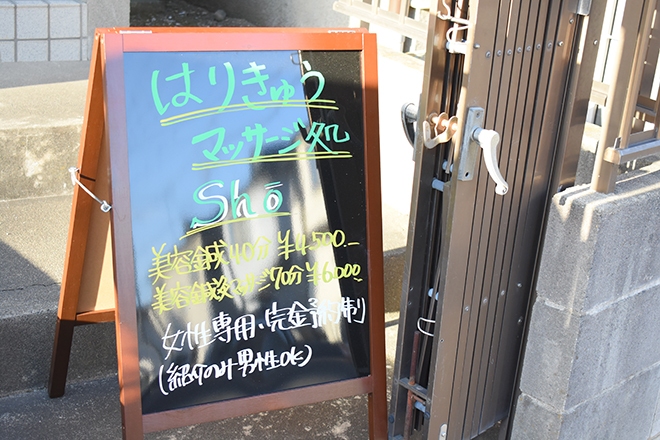 はりきゅう
マッサージ処
Shō
美容鍼40分 ¥4,500
美容鍼灸 70分 ¥6,000
女性専用・完全予約制
(紹介のみ男性OK)